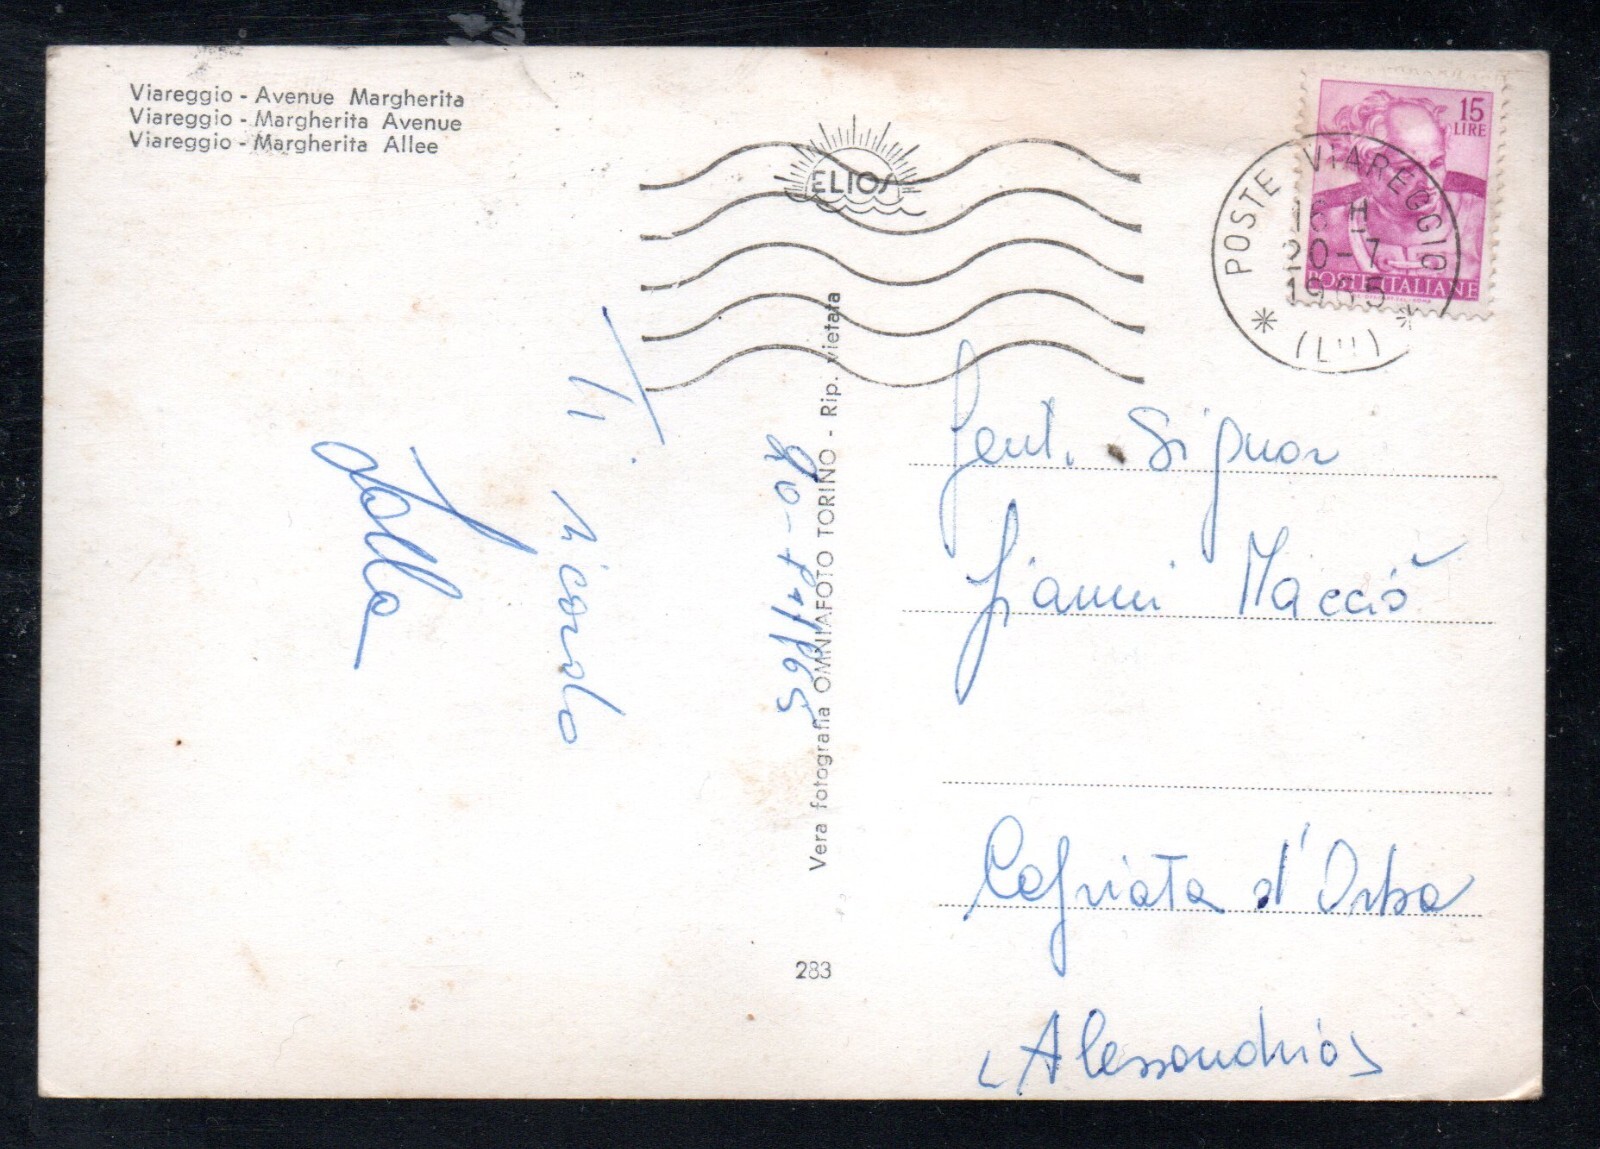 Viareggio - Avenue Margherita
Viareggio - Margherita Avenue
Viareggio - Margherita Allee
ELIOS
15
LIRE
POSTE ITALIANE
POSTE VIAREGGIO
16 H
20-7
1965
(LU)
Vera fotografia OMNIAFOTO TORINO - Rip. vietata
283
20-7-1965
Ti
ricordo
Lolla
Gent. Signor
Gianni Macciò
Capriata d'Orba
(Alessandria)